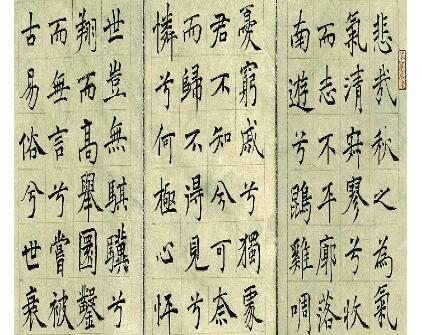 悲哉秋之為氣
氣清寂寥兮收
而志不平廓落
南遊兮鵾雞啁
憂窮戚兮獨處
君不知兮可奈
而歸不得見兮
憐兮何極心怦
世豈無騏驥兮
翔而高舉圜鑿
而無言兮嘗被
古易俗兮世衰